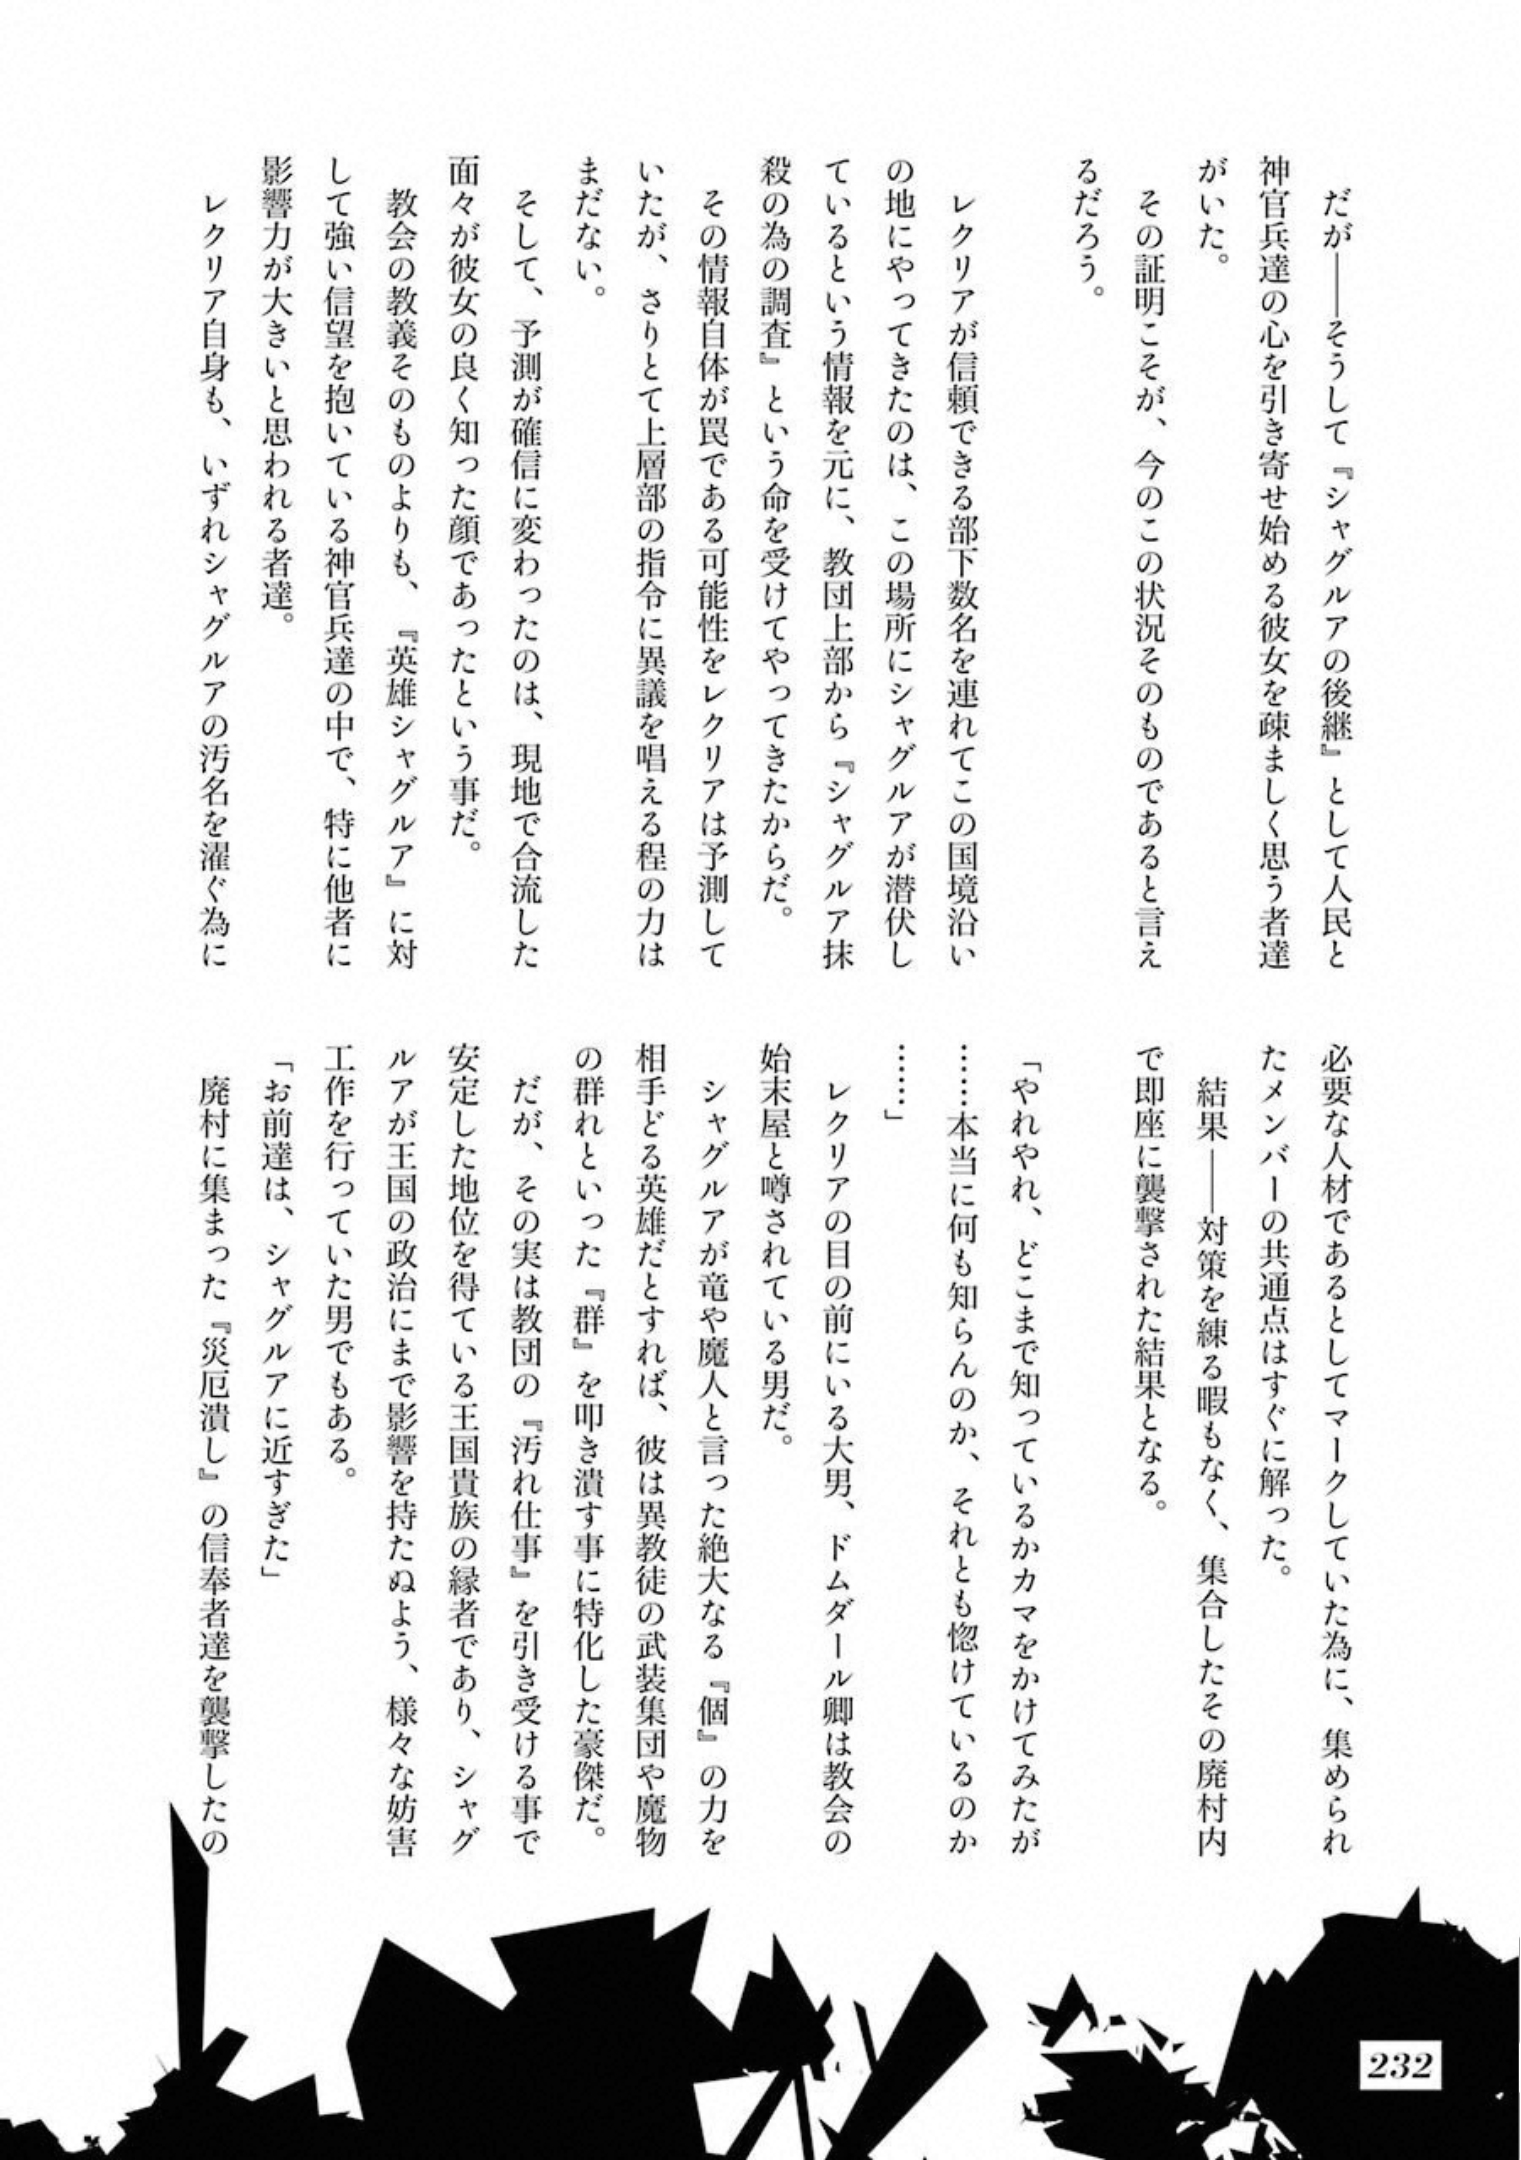 だが――そうして『シャグルアの後継』として人民と
神官兵達の心を引き寄せ始める彼女を疎ましく思う者達
がいた。
その証明こそが、今のこの状況そのものであると言え
るだろう。
レクリアが信頼できる部下数名を連れてこの国境沿い
の地にやってきたのは、この場所にシャグルアが潜伏し
ているという情報を元に、教団上部から『シャグルア抹
殺の為の調査』という命を受けてやってきたからだ。
その情報自体が罠である可能性をレクリアは予測して
いたが、さりとて上層部の指令に異議を唱える程の力は
まだない。
そして、予測が確信に変わったのは、現地で合流した
面々が彼女の良く知った顔であったという事だ。
教会の教義そのものよりも、『英雄シャグルア』に対
して強い信望を抱いている神官兵達の中で、特に他者に
影響力が大きいと思われる者達。
レクリア自身も、いずれシャグルアの汚名を濯ぐ為に
必要な人材であるとしてマークしていた為に、集められ
たメンバーの共通点はすぐに解った。
結果――対策を練る暇もなく、集合したその廃村内
で即座に襲撃された結果となる。
「やれやれ、どこまで知っているかカマをかけてみたが
……本当に何も知らんのか、それとも惚けているのか
……」
レクリアの目の前にいる大男、ドムダール卿は教会の
始末屋と噂されている男だ。
シャグルアが竜や魔人と言った絶大なる『個』の力を
相手どる英雄だとすれば、彼は異教徒の武装集団や魔物
の群れといった『群』を叩き潰す事に特化した豪傑だ。
だが、その実は教団の『汚れ仕事』を引き受ける事で
安定した地位を得ている王国貴族の縁者であり、シャグ
ルアが王国の政治にまで影響を持たぬよう、様々な妨害
工作を行っていた男でもある。
「お前達は、シャグルアに近すぎた」
廃村に集まった『災厄潰し』の信奉者達を襲撃したの
232